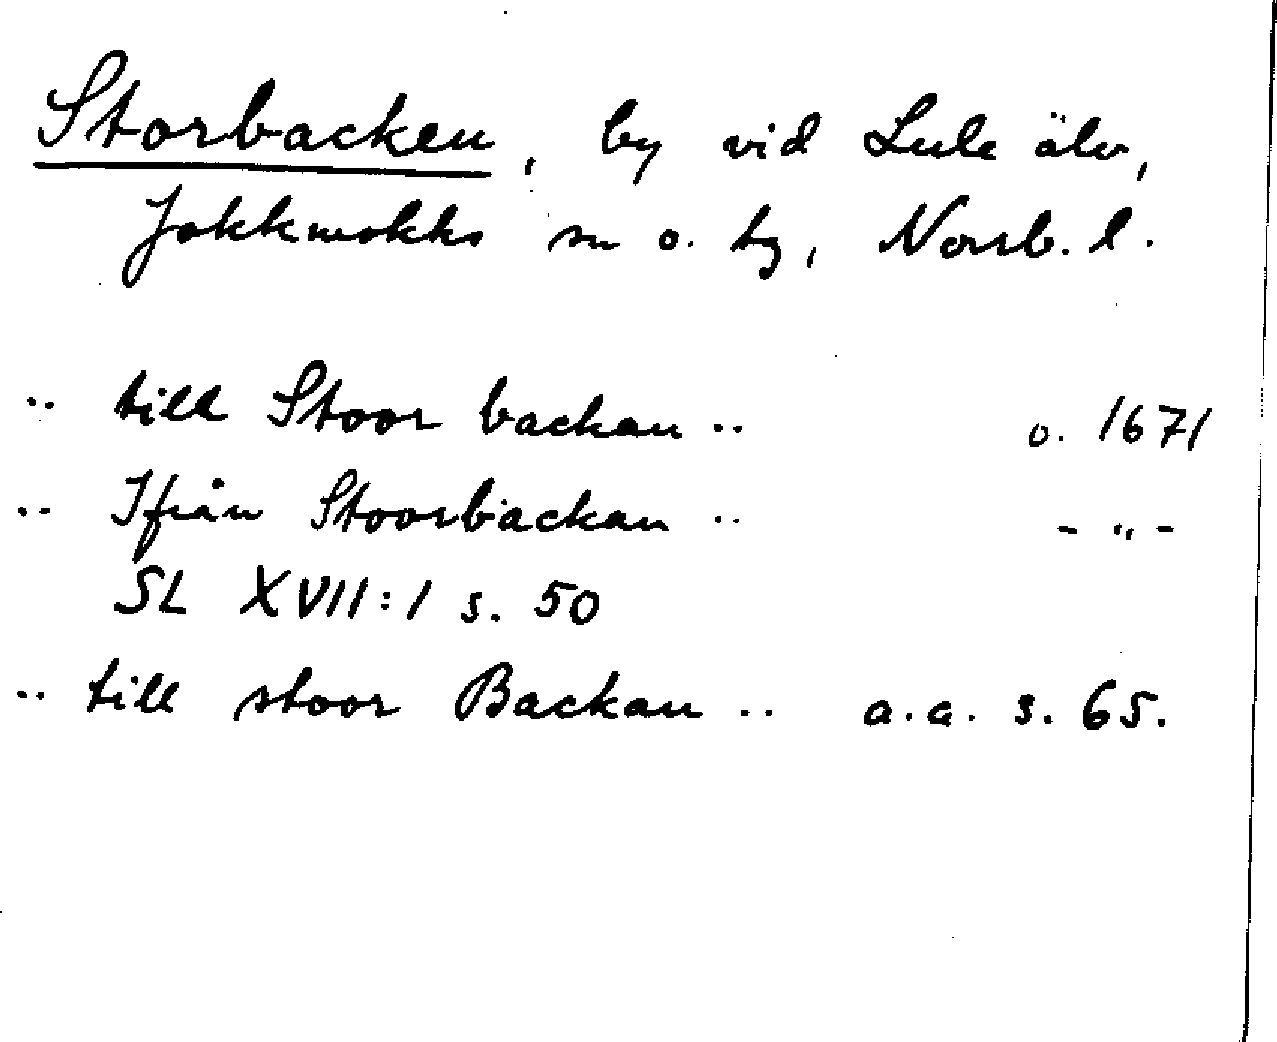 Storbacken, by vid Lule älv,
Jokkmokks sn o. tg, Norrb. l.
.. till Stoor backan .. o. 1671
.. Ifrån Stoorbackan .. - " -
SL XVII:1 s. 50
.. till stoor Backan .. a.a. s. 65.